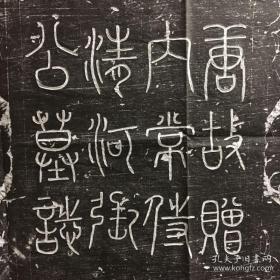 唐故贈
內常侍
清河張
公墓誌
孔夫子旧书网